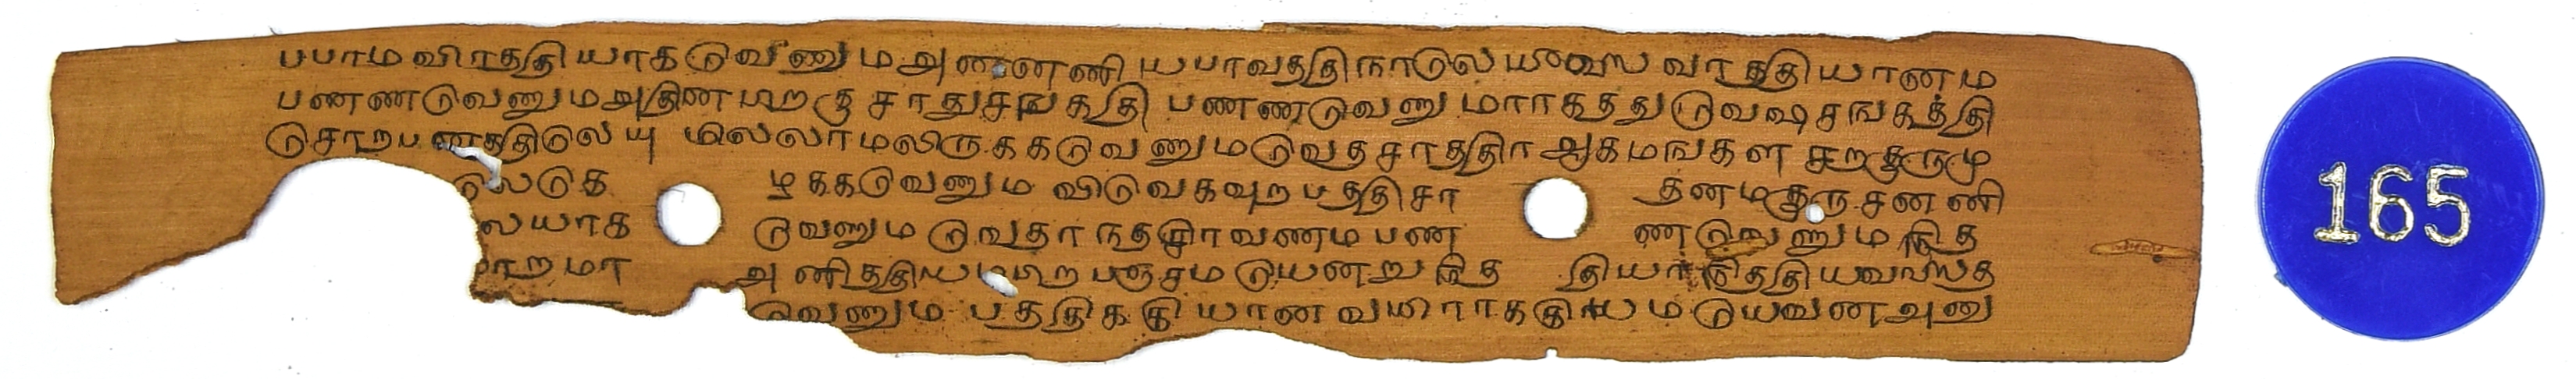 பபாம விரததி யாக டுவணும அணனணி யபாவததிநாடுல யூவஸ வாததி யானம
பணணடுவணும அதிண மற கு சாதுசஙகதி பணணடுவணு மாாகதது டுவஷசஙகத்தி
டுசாறபணததிடுல யு மிலலாமலிருககடுவணுமடுவதசாததிர ஆகமஙகள சறகுருமு
டுலடுக ழககடுவணும விடுவகவுறபததிசா தனமகுருசனணி
லயாக டுவணும டுவதாநதசிரவணம பண ணடுவணும நித
ாறமா அனிததிய மற பஞசமடுயனறு நித தியாநிததியவஸத
டுவணும பததிககியான வயிராககியமடுயவணஅனு
165